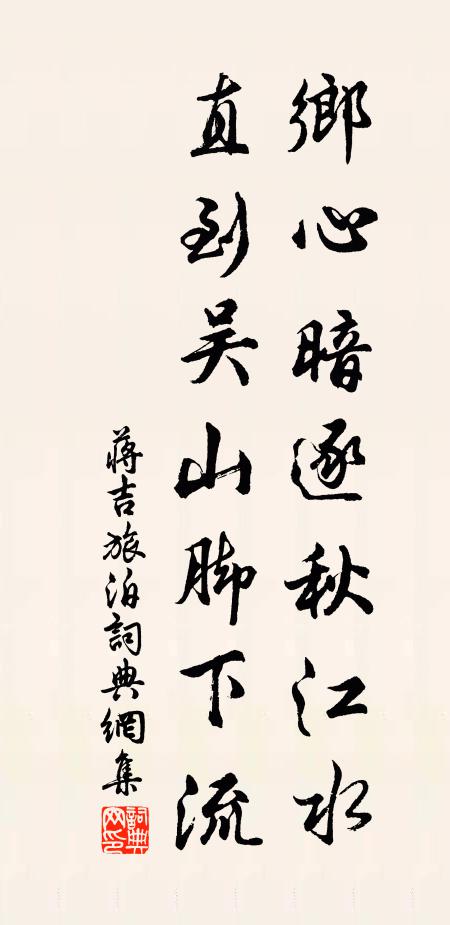 鄉心暗逐秋江水
直到吴山脚下流
蔣吉旅泊詞典網集
詞典網印